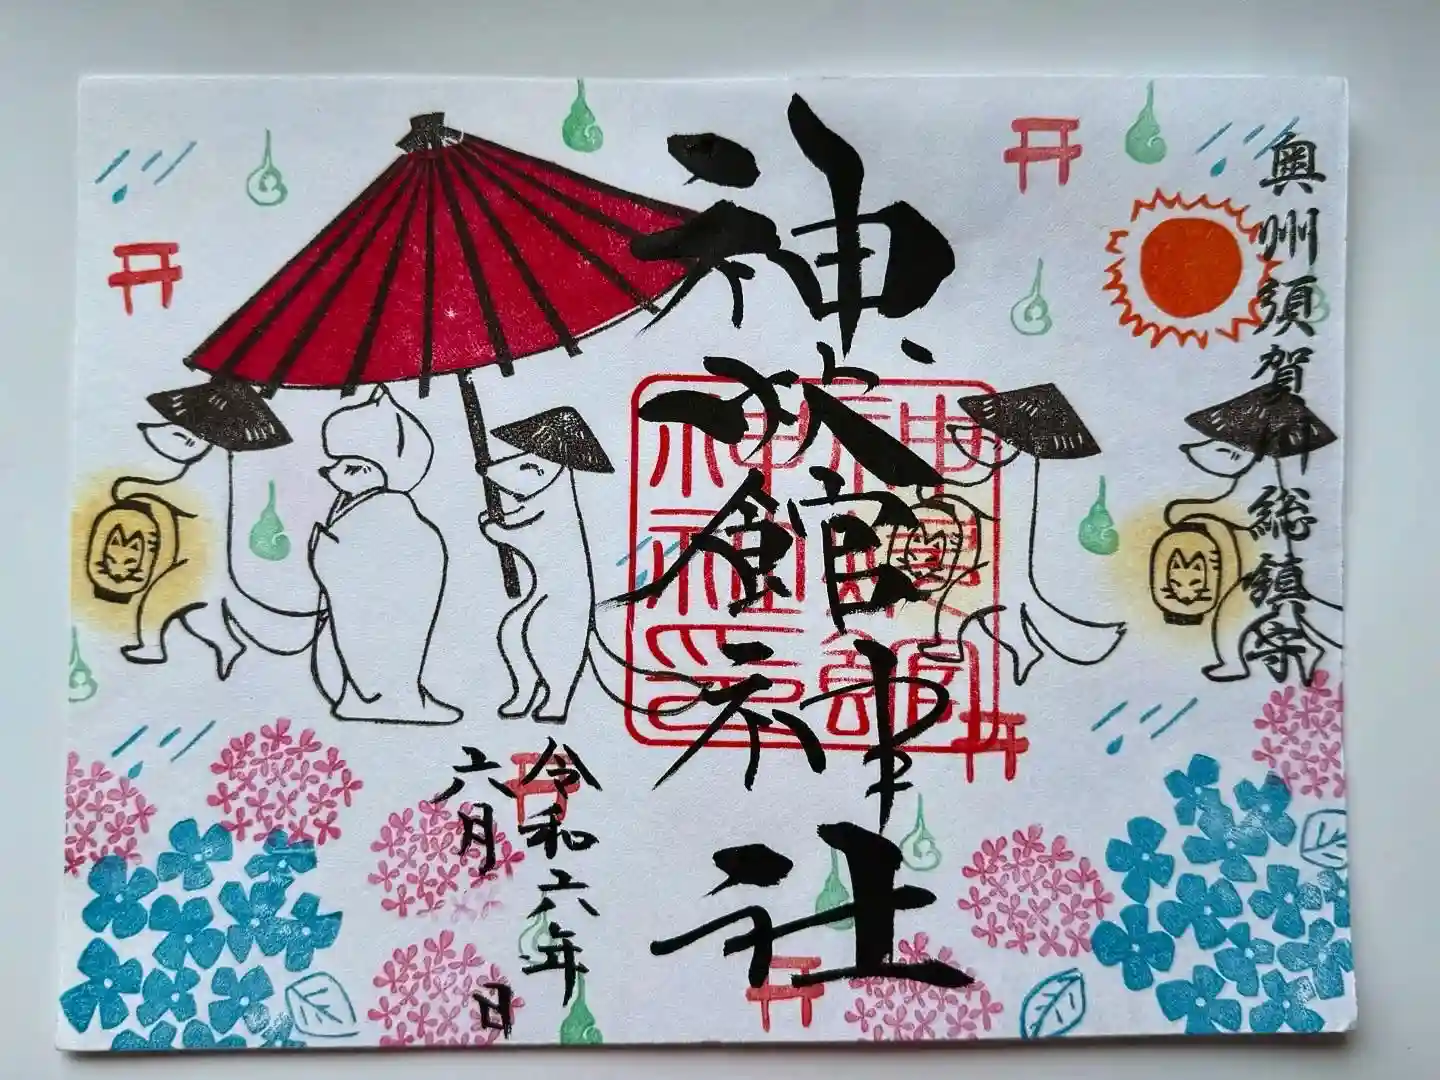 奥州須賀川総鎮守
神炊館神社
令和六年
六月 日